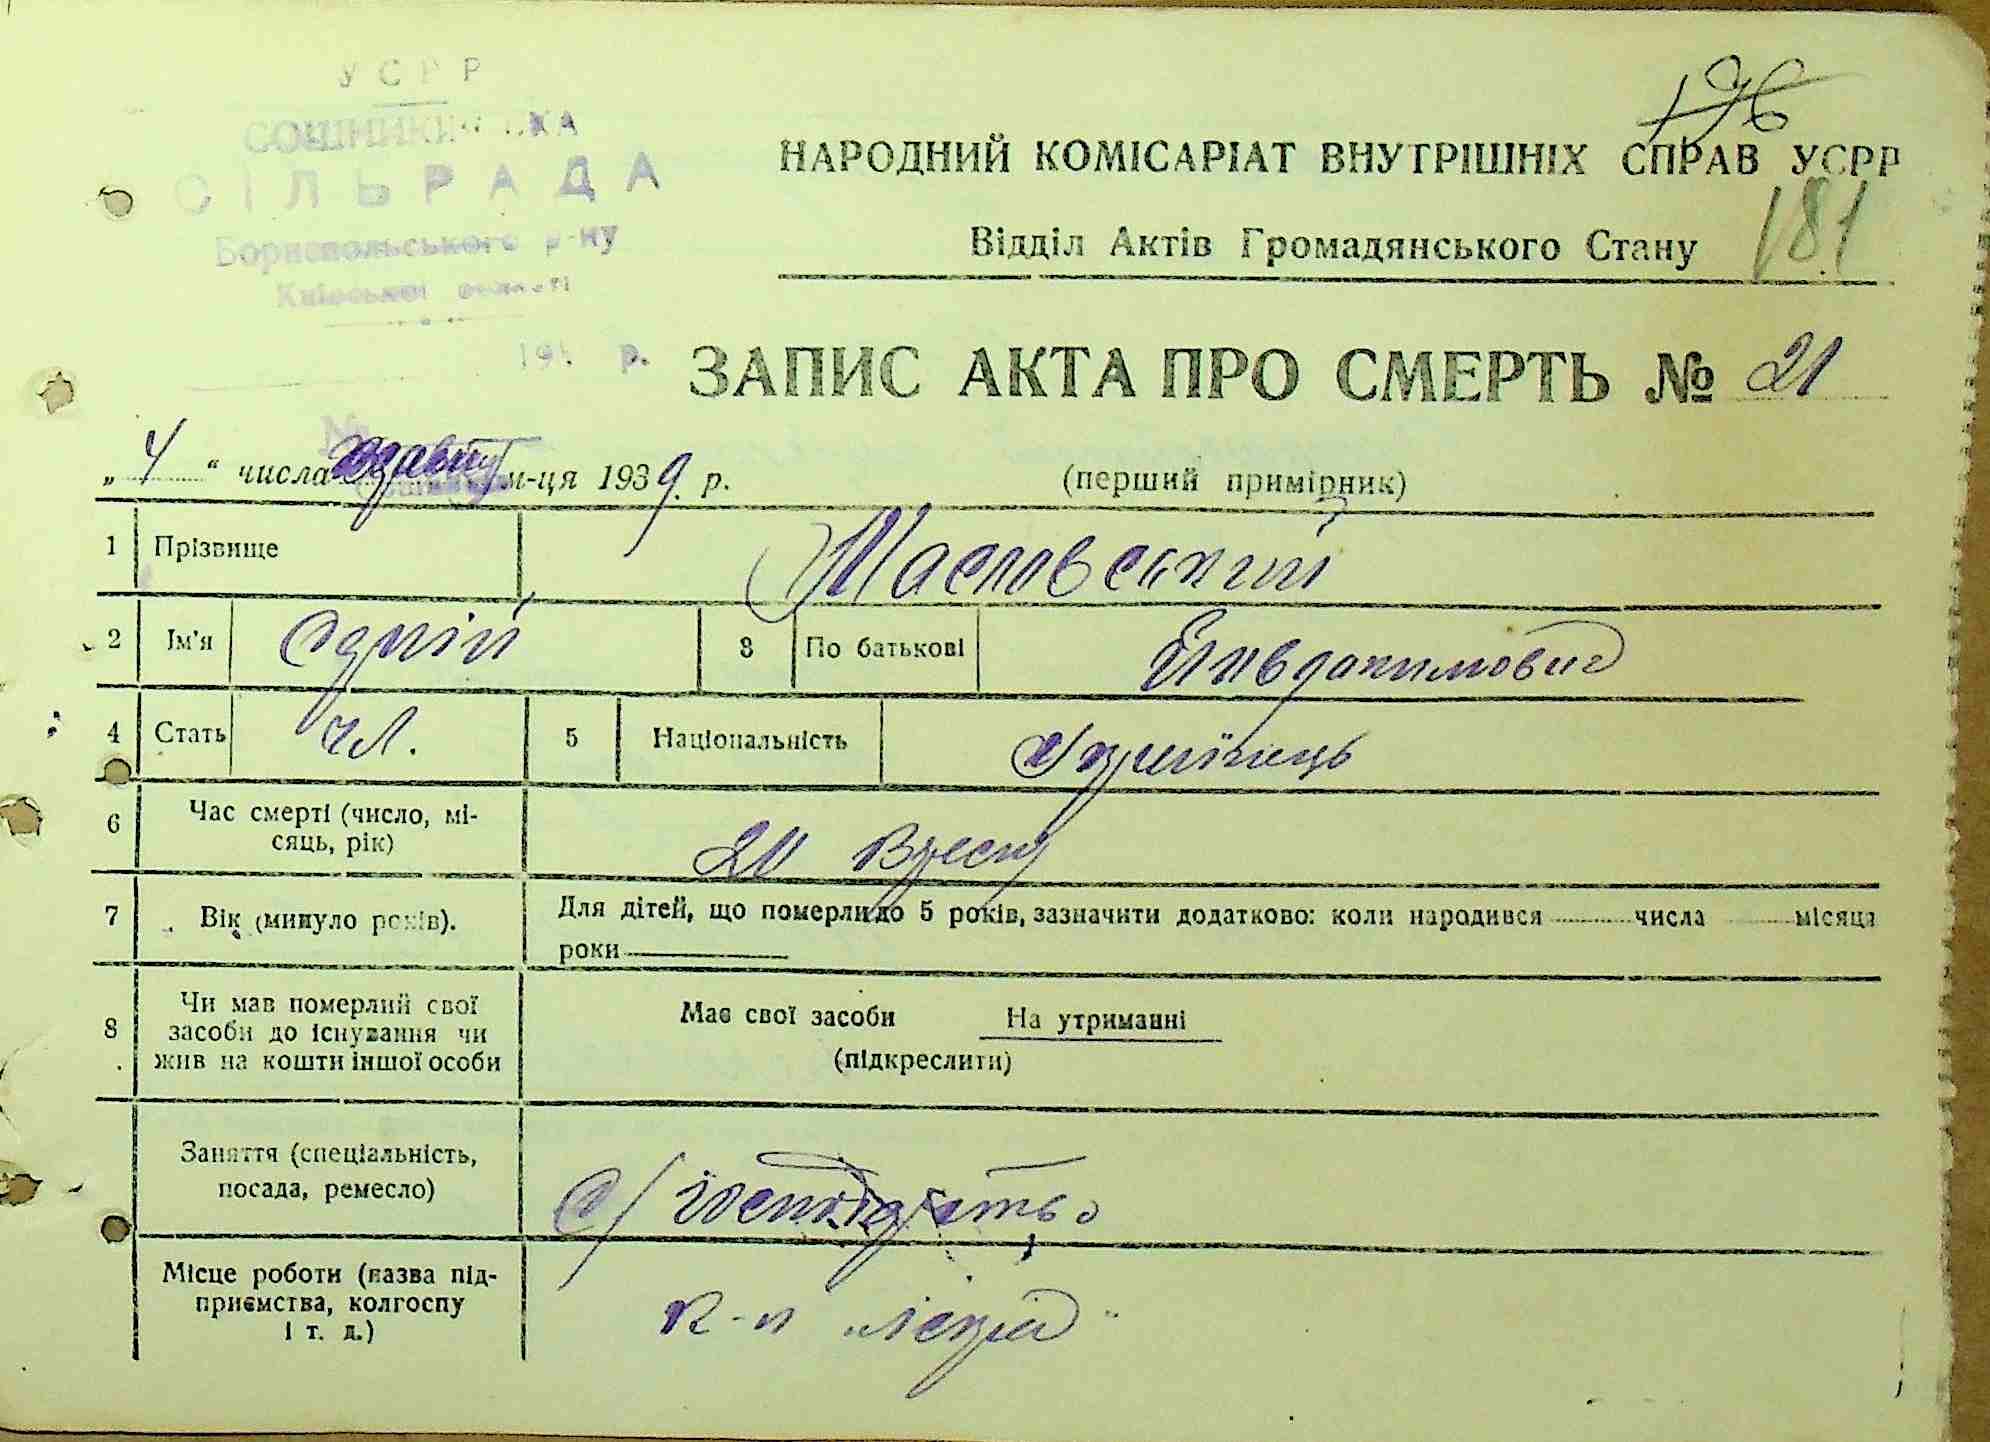 УСРР
СОШНИКІВСЬКА
СІЛЬРАДА
Бориспольського р-ну
Київської області
193 р.
№
196
181
НАРОДНИЙ КОМІСАРІАТ ВНУТРІШНІХ СПРАВ УСРР
Відділ Актів Громадянського Стану
ЗАПИС АКТА ПРО СМЕРТЬ № 21
„ 4 “ числа м-ця 1939 р. (перший примірник)
1 Прізвище
2 Ім'я 3 По батькові
4 Стать чл. 5 Національність Українець
6 Час смерті (число, мі-
сяць, рік)
7 Вік (минуло років). Для дітей, що померли до 5 років, зазначити додатково: коли народився числа місяця
роки
8 Чи мав померлий свої
засоби до існування чи
жив на кошти іншої особи
Має свої засоби На утриманні
(підкреслити)
Заняття (спеціальність,
посада, ремесло)
С/господарство
Місце роботи (назва під-
приємства, колгоспу
і т. д.)